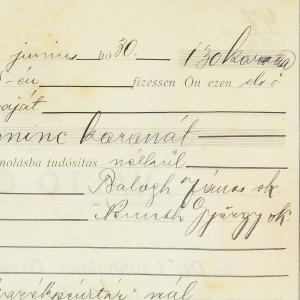 junius hó 30. 130 korona
-én fizessen Ön ezen első
saját
minc koronát
molásba tudósítás nélkül
Balogh János sk.
Németh György sk.
nál